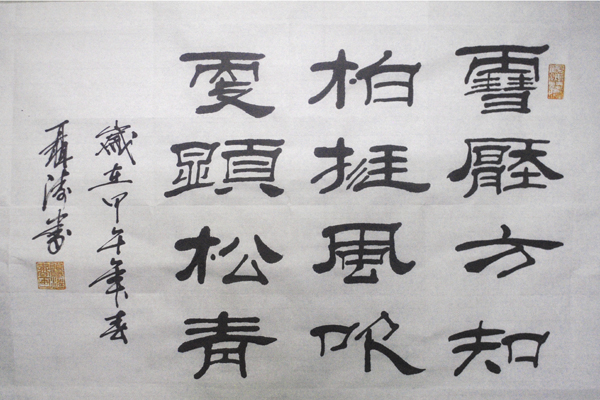 雪壓方知
柏挺風吹
更顯松青
歲在甲午年春
聶濤書